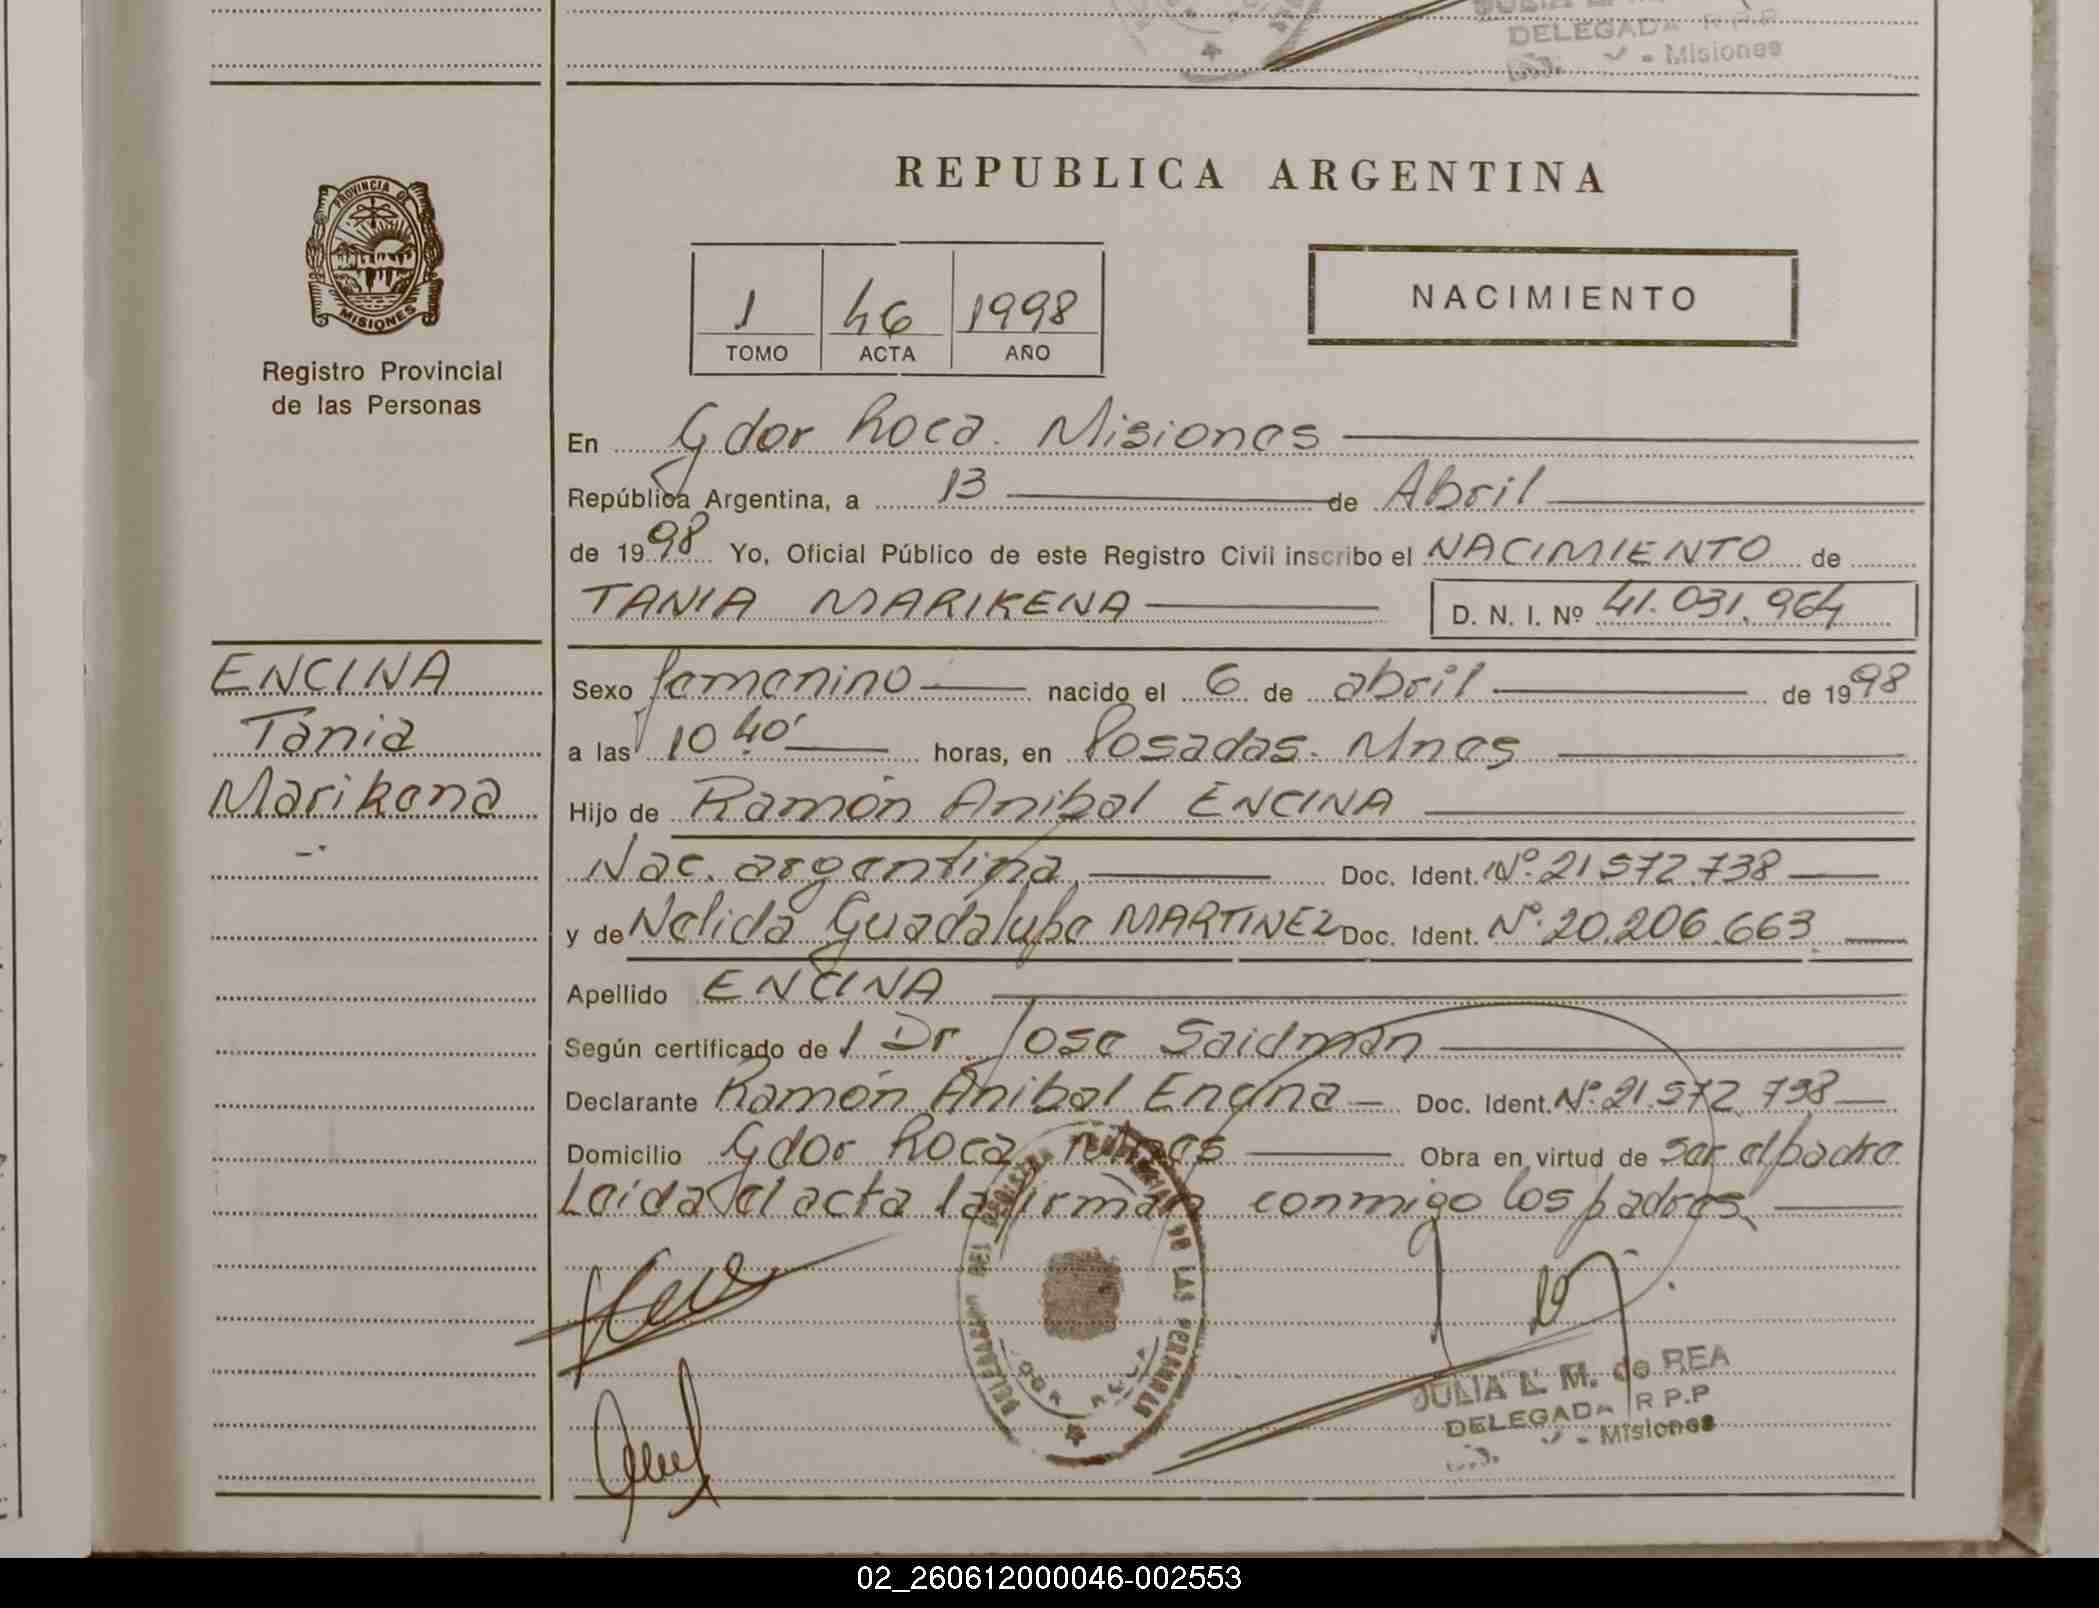 JULIA
DELEGADA R.P.P
- Misiones
PROVINCIA DE
MISIONES
Registro Provincial
de las Personas
REPUBLICA ARGENTINA
1 46 1998
TOMO ACTA AÑO
NACIMIENTO
En Gdor Roca. Misiones
República Argentina, a 13 de Abril
de 1998 Yo, Oficial Público de este Registro Civil inscribo el NACIMIENTO de
TANIA MARIKENA D. N. I. Nº 41.031.964
ENCINA
Tania
Marikena
Sexo femenino nacido el 6 de abril de 1998
a las 10 40' horas, en Posadas. Mnes
Hijo de Ramón Anibal ENCINA
Nac. argentina Doc. Ident. Nº 21.572.738
y de Nelida Guadalupe MARTINEZ Doc. Ident. Nº 20.206.663
Apellido ENCINA
Según certificado de 1 Dr Jose Saidman
Declarante Ramón Anibal Encina Doc. Ident. Nº 21.572.738
Domicilio Gdor Roca Mnes Obra en virtud de ser el padre
Leida el acta la firman conmigo los padres
DE LAS PERSONAS
JULIA L. M. de REA
DELEGADA R.P.P
- Misiones
02_260612000046-002553